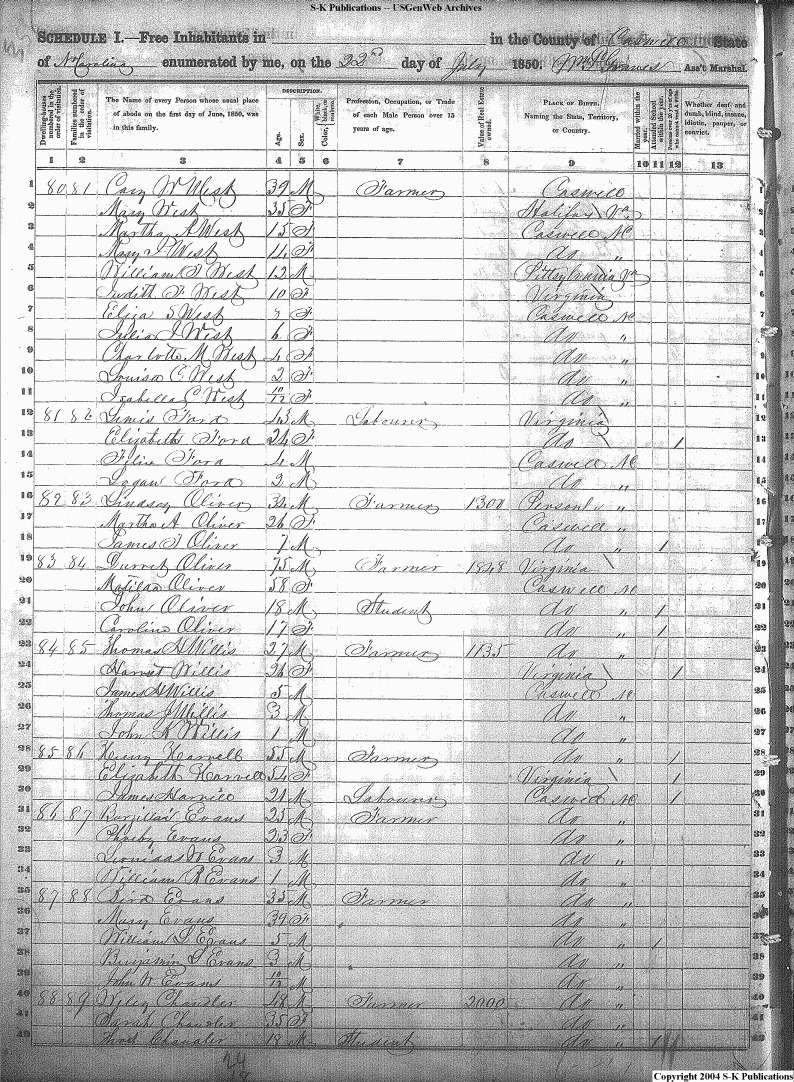 S-K Publications -- USGenWeb Archives
SCHEDULE I.—Free Inhabitants in in the County of Caswell State
of N Carolina enumerated by me, on the 22nd day of July 1850. Graves Ass't Marshal.
Dwelling-houses numbered in the order of visitation.
Families numbered in the order of visitation.
The Name of every Person whose usual place of abode on the first day of June, 1850, was in this family.
DESCRIPTION.
Age.
Sex.
Color, White, black, or mulatto.
Profession, Occupation, or Trade of each Male Person over 15 years of age.
Value of Real Estate owned.
PLACE OF BIRTH. Naming the State, Territory, or Country.
Married within the year.
Attended School within the year.
Persons over 20 y'rs of age who cannot read & write.
Whether deaf and dumb, blind, insane, idiotic, pauper, or convict.
1 2 3 4 5 6 7 8 9 10 11 12 13
1 80 81 Cary W West 39 M Farmer Caswell 1
2 Mary West 35 F Halifax Va 2
3 Martha A West 15 F Caswell NC 3
4 Mary West 14 F do " 4
5 William West 12 M Pittsylvania Va 5
6 Judith F West 10 F Virginia 6
7 Eliza S West 8 F Caswell NC 7
8 Julia J West 6 F do " 8
9 Charlotte M West 4 F do " 9
10 Louisa C West 2 F do " 10
11 Isabella C West 10/12 F do " 11
12 81 82 Lewis Ford 43 M Labourer Virginia 12
13 Elizabeth Ford 24 F do / 13
14 Ford 4 M Caswell NC 14
15 Logan Ford 2 M do " 15
16 82 83 Lindsey Oliver 34 M Farmer 1300 Person " 16
17 Martha A Oliver 26 F Caswell " 17
18 James Oliver 7 M do " / 18
19 83 84 Durret Oliver 75 M Farmer 1848 Virginia 19
20 Matilda Oliver 58 F Caswell NC 20
21 John Oliver 18 M Student do " / 21
22 Caroline Oliver 17 F do " / 22
23 84 85 Thomas H Willis 27 M Farmer 1135 do " 23
24 Harriet Willis 26 F Virginia / 24
25 James H Willis 5 M Caswell NC 25
26 Thomas J Willis 3 M do " 26
27 John Willis 1 M do " 27
28 85 86 Henry Harvell 55 M Farmer do " / 28
29 Elizabeth Harvell 54 F Virginia / 29
30 James Harvell 21 M Labourer Caswell NC / 30
31 86 87 Barzillai Evans 25 M Farmer do " 31
32 Phoeby Evans 23 F do " 32
33 Leonidas Evans 3 M do " 33
34 William R Evans 1 M do " 34
35 87 88 Bird Evans 35 M Farmer do " 35
36 Mary Evans 39 F do " 36
37 William L Evans 5 M do " / 37
38 Benjamin Evans 3 M do " 38
39 John W Evans 10/12 M do " 39
40 88 89 Wiley Chandler 48 M Farmer 2000 do " 40
41 Sarah Chandler 35 F do " 41
42 Chandler 18 M Student do " / 42
Copyright 2004 S-K Publications